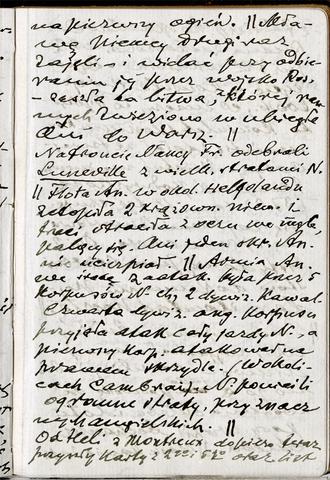 na pierwszy ogień. || Mła-
wę Niemcy drugi raz
zajęli - i widać przy odbie-
raniu jej przez wojsko Ros.
- zeszła ta bitwa, z której ran-
nych zwieziono w ubiegłą
do Warsz. ||
Na froncie Nancy Fr. odebrali
Luneville z wielk. stratami N.
|| Flota An. w okol. Helgolandu
zatopiła 2 krążown. niem. i
trzeci straciła z oczu we mgle
palący się. Ani jeden okr. An.
nie ucierpiał || Armia An.
przez 5
korpusów N-ch, 2 dywiz. kawal.
Czwarta dywiz. ang. korpusu
przyjęła atak całej jazdy N., a
pierwszy korp. atakował na
prawem skrzydle. (W okoli-
cach Cambrai). N. ponieśli
ogromne straty, przy znacz
nych angielskich. ||
Od Heli z Montreux dopiero teraz
przyszły karty z 2go i 5go oraz list